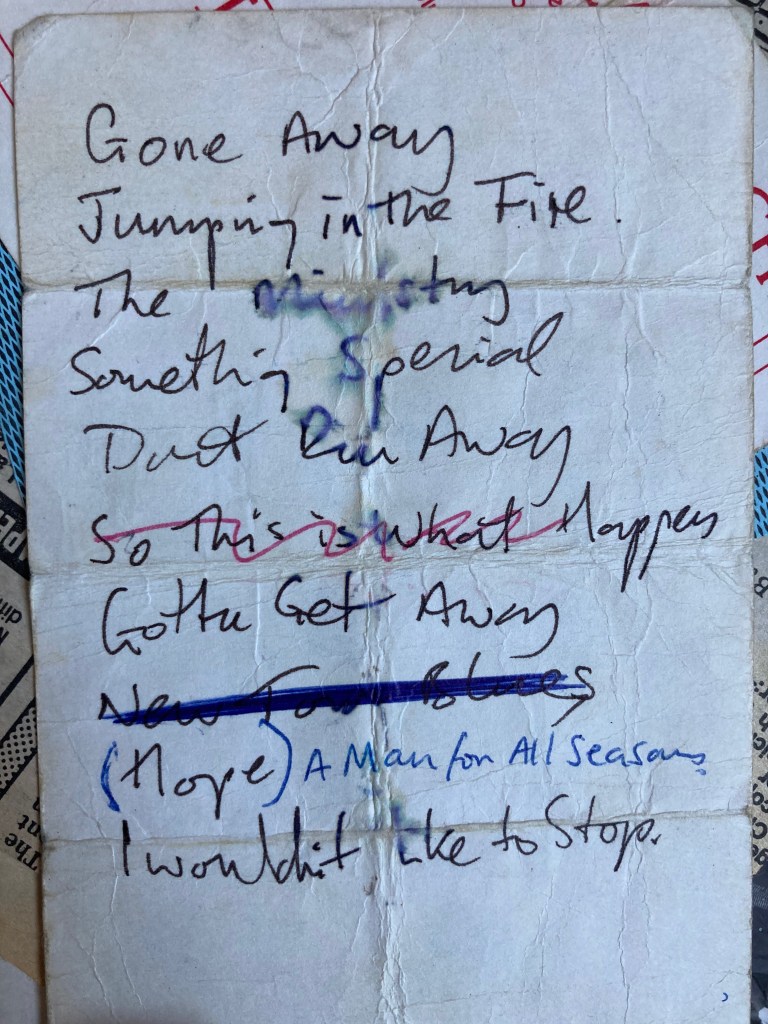 Gone Away
Jumping in the Fire.
The Ministry
Something Special
Dont Run Away
So This is What Happens
Gotta Get Away
New Town Blues
(Hope) A Man for All Seasons
I wouldn't like to Stop.